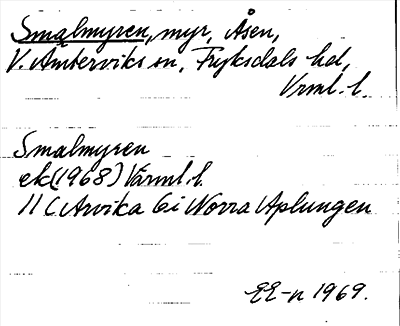 Smalmyren, myr, Åsen,
V. Ämterviks sn, Fryksdals hd,
Vrml. l.
Smalmyren
ek (1968) Värml. l.
11 C Arvika 6i Norra Aplungen
EE-n 1969.